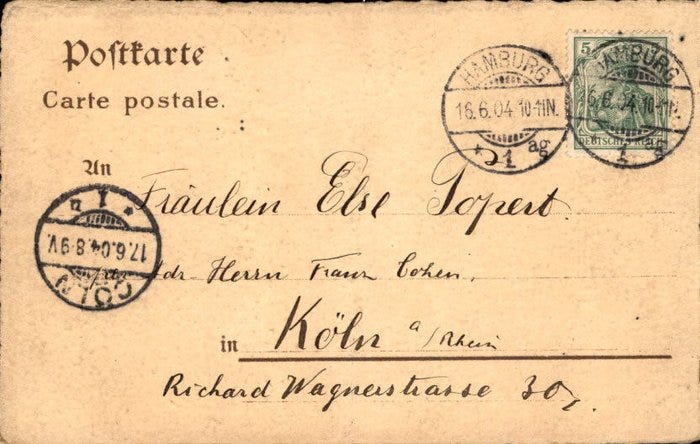 Postkarte
Carte postale.
HAMBURG
16.6.04.10-11N.
* 1 ag
5
HAMBURG
6.6.04.10-11N.
1 ag
DEUTSCHES REICH
An Fräulein Else Topert.
17.6.04.8-9V.
CÖLN
* 1 n
adr Herrn Franz Cohen,
in Köln a/Rhein
Richard Wagnerstrasse 30,